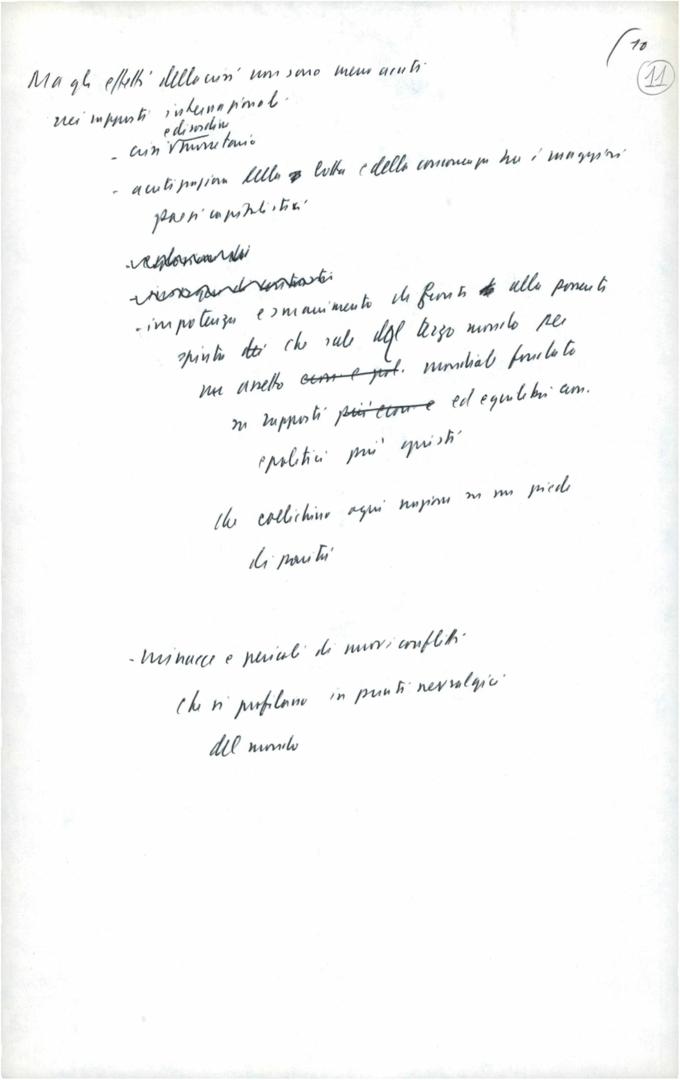 10
11
Ma gli effetti della crisi non sono meno acuti
nei rapporti internazionali
e disordine
- crisi monetaria
- acutizzazione della lotta e della concorrenza tra i maggiori
paesi capitalistici
- impotenza e smarrimento di fronte alla possente
spinta che sale dal terzo mondo per
un assetto econ e pol. mondiale fondato
su rapporti più econ e ed equilibri econ.
e politici più giusti
che collochino ogni nazione su un piede
di parità
- Minacce e pericoli di nuovi conflitti
che si profilano in punti nevralgici
del mondo